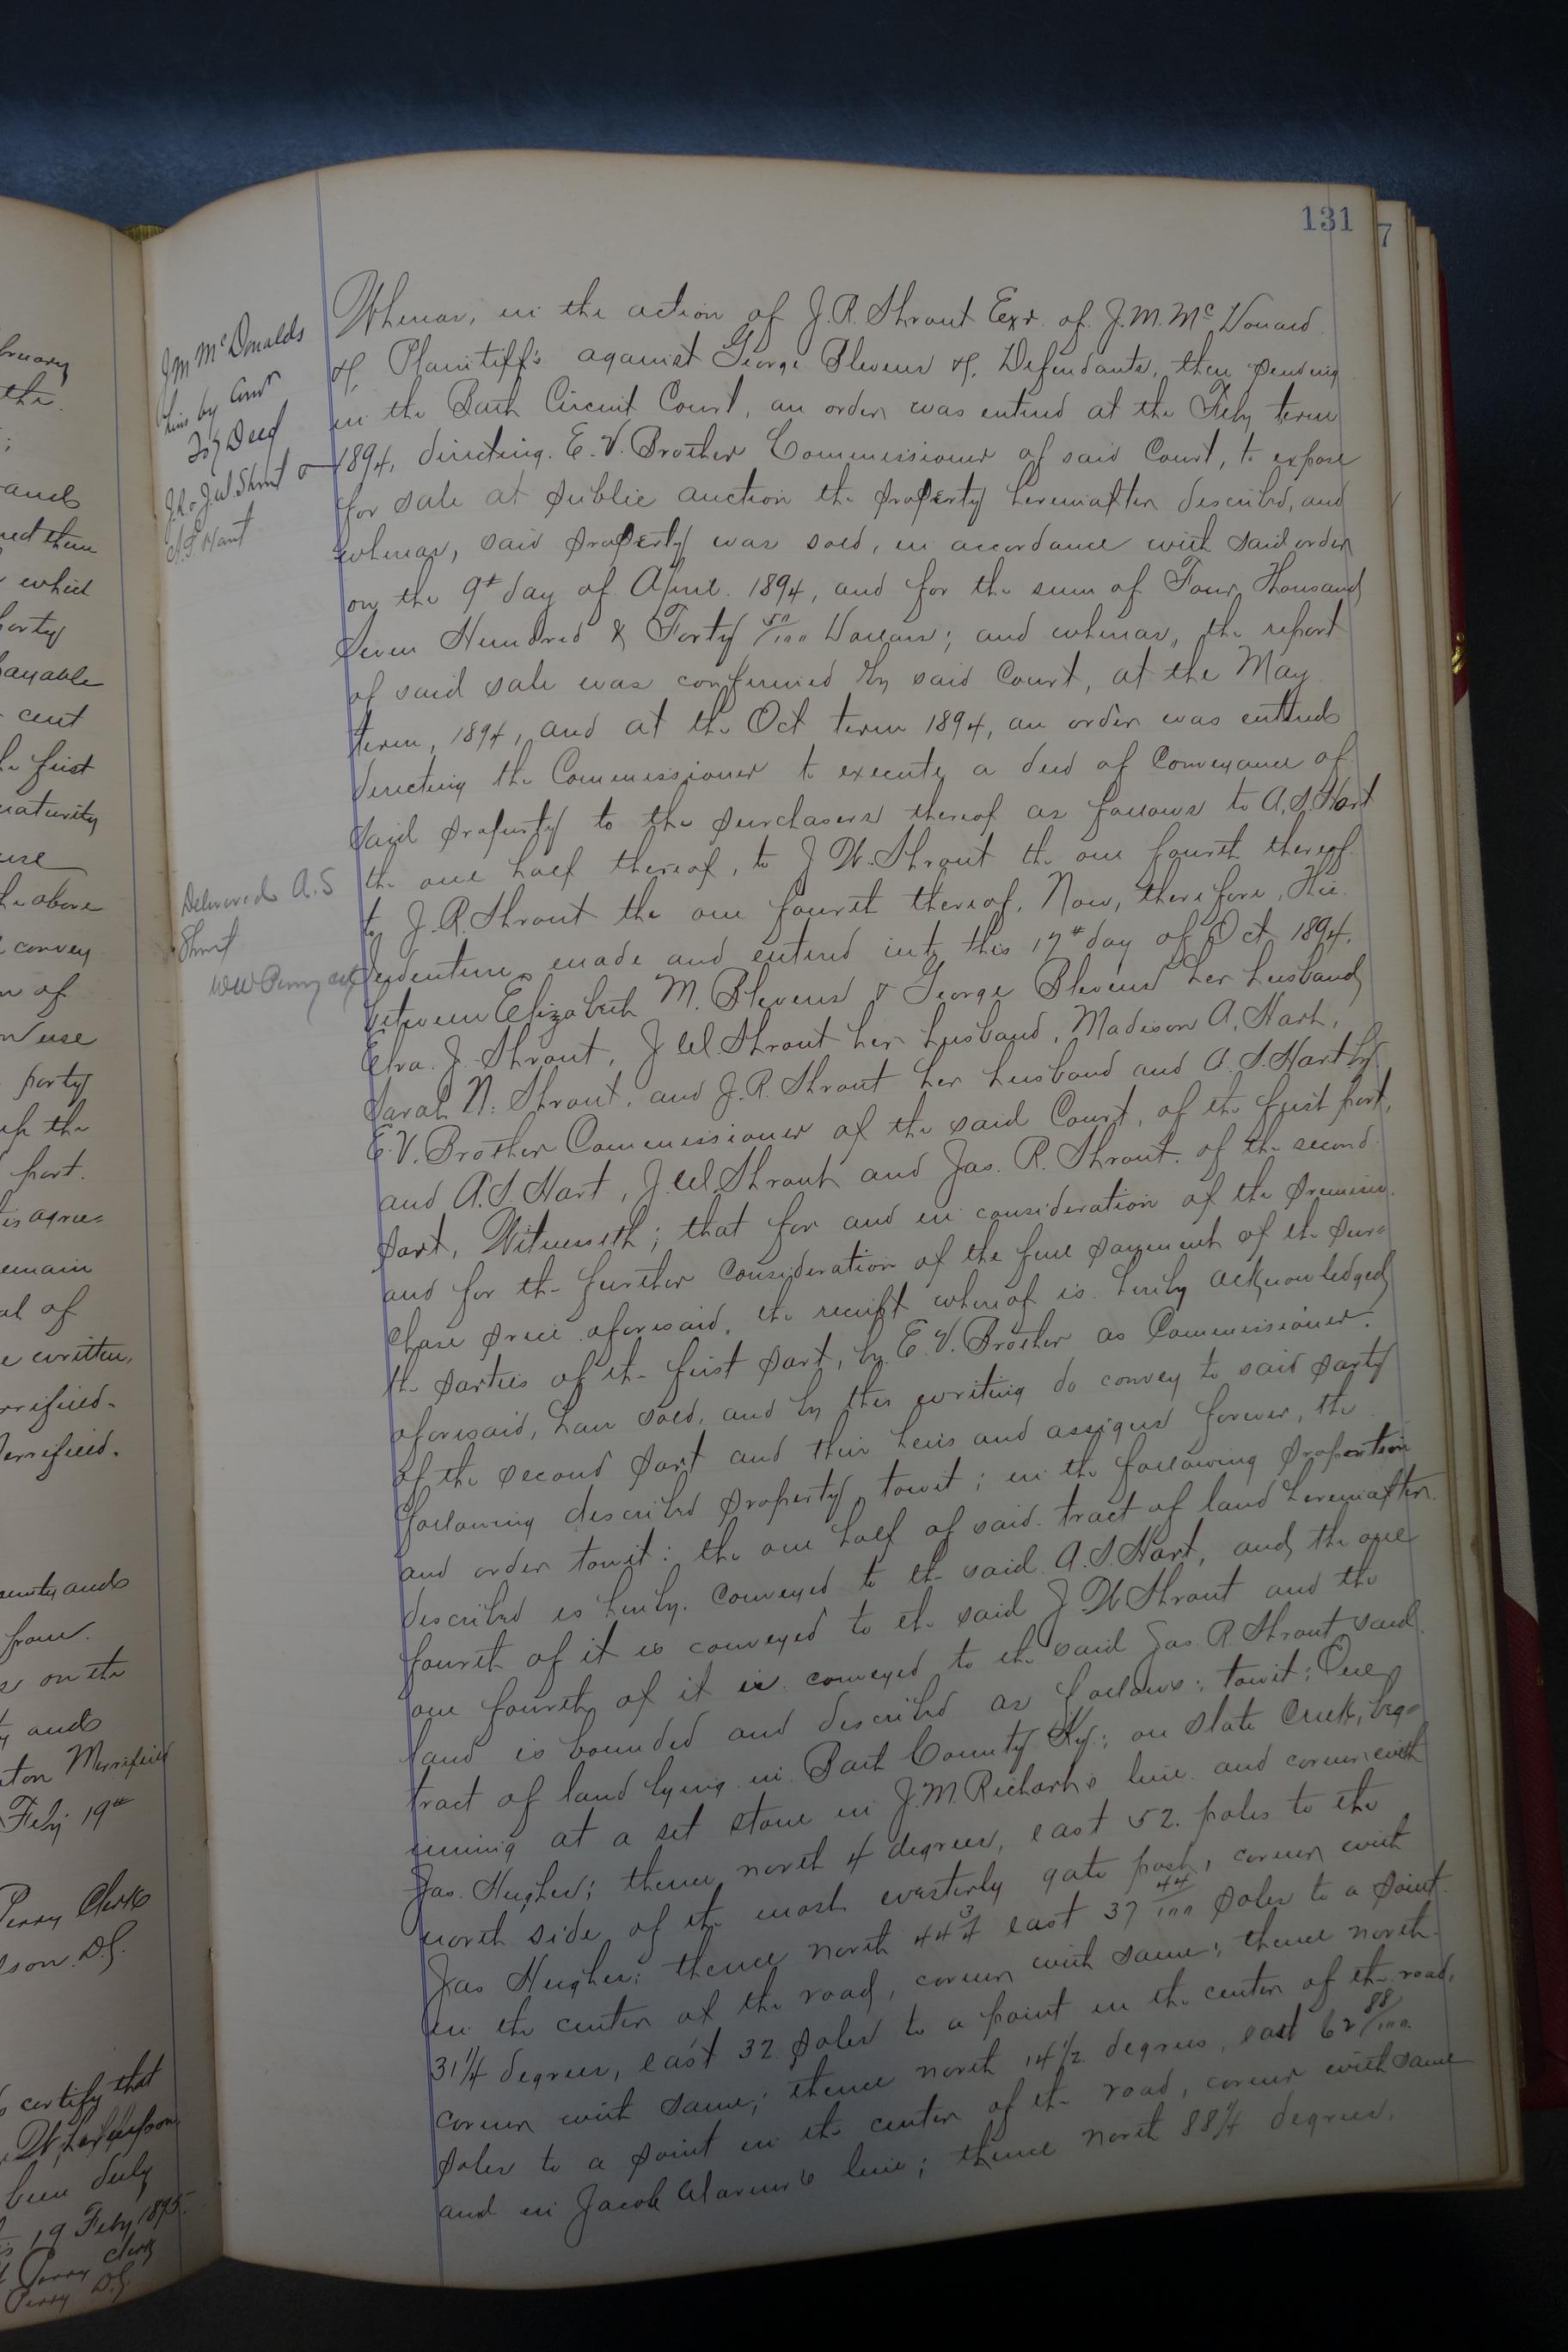 131
7
J M McDonalds
heirs by Comr
To} Deed
J.R. & J.W. Shrout &
A.S. Hart
Whereas, in the action of J.R. Shrout Exr. of J.M. McDonald
&c, Plaintiff's against George Blevens &c, Defendants, then pending
in the Bath Circuit Court, an order was entered at the Feby term
1894, directing E. V. Brother Commissioner of said Court, to expose
for sale at public auction the property hereinafter described, and
whereas, said property was sold, in accordance with said order
on the 9th day of April 1894, and for the sum of Four Thousand
Seven Hundred & Forty 50/100 Dollars; and whereas, the report
of said sale was confirmed by said Court, at the May
term, 1894, and at the Oct term 1894, an order was entered
directing the Commissioner to execute a deed of Conveyance of
said property to the purchasers thereof as follows to A.S. Hart
the one half thereof, to J W. Shrout the one fourth thereof
to J.R. Shrout the one fourth thereof. Now, therefore, this
Delivered A.S
Shrout
WW Perry clk
Indenture, made and entered into this 17th day of Oct 1894.
between Elizabeth M. Blevens & George Blevens her husband,
Elva. J. Shrout, J W. Shrout her husband, Madison A. Hart,
Sarah N. Shrout, and J.R. Shrout her husband and A.S. Hart by
E.V. Brother Commissioner of the said Court, of the first part,
and A.S. Hart, J.W. Shrout and Jas. R. Shrout. of the second
part, Witnesseth; that for and in consideration of the premises
and for the further consideration of the full payment of the pur=
chase price aforesaid, the receipt whereof is hereby acknowledged
the parties of the first part, by E.V. Brother as Commissioner.
aforesaid, have sold, and by this writing do convey to said party
of the second part and their heirs and assigns forever, the
following described property towit; in the following proportion
and order towit: the one half of said tract of land hereinafter
described is hereby conveyed to the said A.S. Hart, and the one
fourth of it is conveyed to the said J W Shrout and the
one fourth of it is conveyed to the said Jas. R. Shrout said
land is bounded and described as follows: towit; One
tract of land lying in Bath County Ky; on Slate Creek, beg=
inning at a set stone in J.M. Richarts line and corner with
Jas. Hughes; thence north 4 degrees, east 52 poles to the
north side of the most westerly gate post, corner with
Jas Hughes; thence north 44 3/4 east 37 44/100 poles to a point
in the center of the road, corner with same; thence north
31 1/4 degrees, east 32 poles to a point in the center of the road,
corner with same; thence north 14 1/2 degrees, east 62 88/100
poles to a point in the center of the road, corner with same
and in Jacob Warner's line; thence north 88 1/4 degrees,